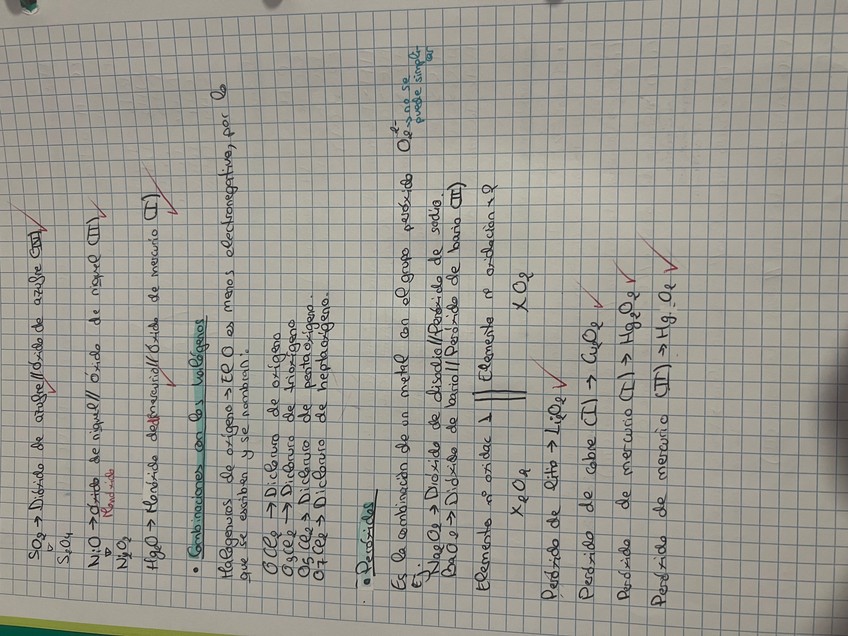 SO₂ → Dióxido de azufre // Óxido de azufre (IV)
S₂O₄
NiO → Óxido de níquel // Óxido de níquel (II)
Monóxido
Ni₂O₂
Hg₂O → Monóxido de dimercurio // Óxido de mercurio (I)
• Combinaciones con los halógenos
Halogenuros de oxígeno → El O es menos electronegativo, por lo
que se escriben y se nombran:
OCl₂ → Dicloruro de oxígeno
O₃Cl₂ → Dicloruro de trioxígeno
O₅Cl₂ → Dicloruro de pentaoxígeno.
O₇Cl₂ → Dicloruro de heptaoxígeno.
• Peróxidos
Es la combinación de un metal con el grupo peróxido O₂²⁻ → no se
puede simplifi-
car
Ej.
Na₂O₂ → Dióxido de disodio // Peróxido de sodio.
BaO₂ → Dióxido de bario // Peróxido de bario (II)
Elemento nº oxidac 1 || Elemento nº oxidación +2
X₂O₂ XO₂
Peróxido de litio → Li₂O₂
Peróxido de cobre (I) → Cu₂O₂
Peróxido de mercurio (I) → Hg₂O₂
Peróxido de mercurio (II) → HgO₂